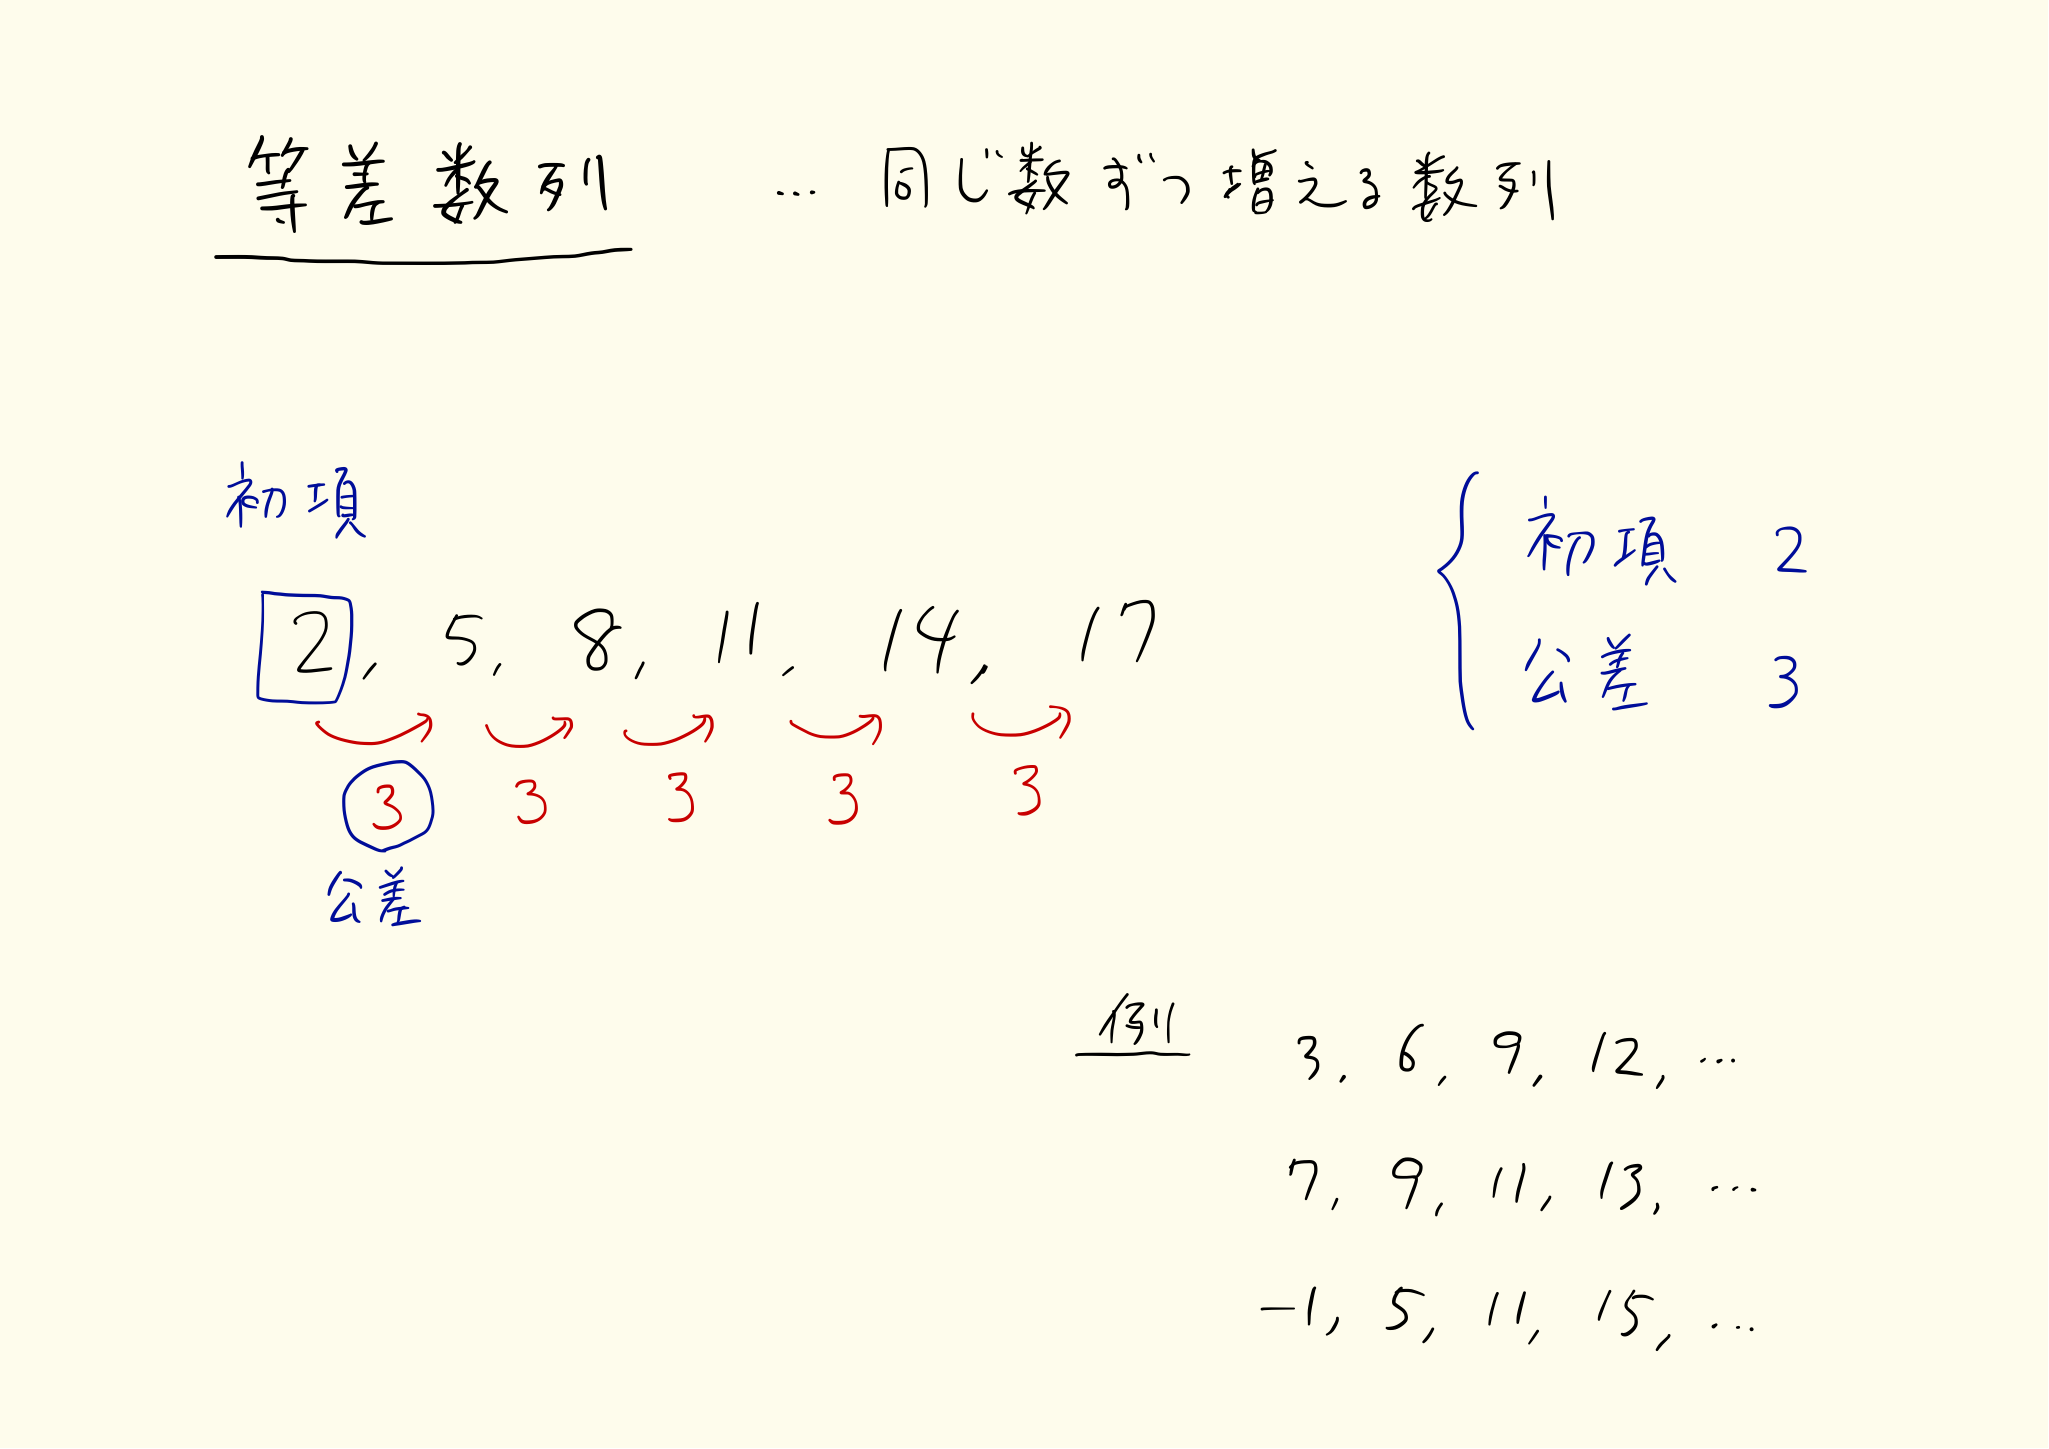 等差数列 … 同じ数ずつ増える数列
初項
2, 5, 8, 11, 14, 17
3 3 3 3 3
公差
初項 2
公差 3
例 3, 6, 9, 12, …
7, 9, 11, 13, …
-1, 5, 11, 15, …